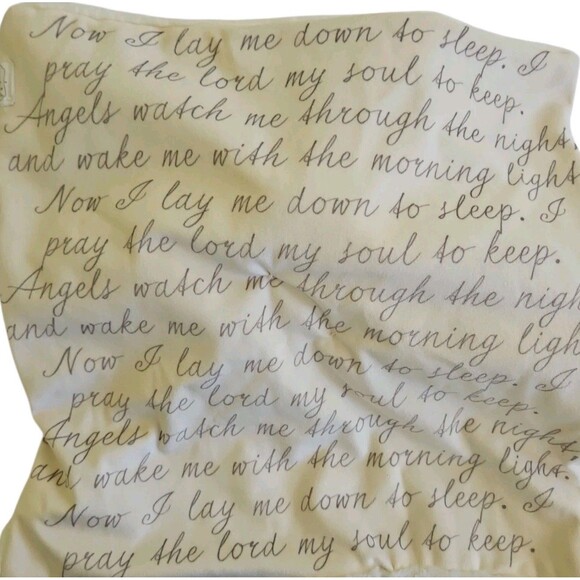 Now I lay me down to sleep. I
pray the lord my soul to keep.
Angels watch me through the night,
and wake me with the morning light
Now I lay me down to sleep. I
pray the lord my soul to keep.
Angels watch me through the nigh
and wake me with the morning ligh
Now I lay me down to sleep. I
pray the lord my soul to keep.
Angels watch me through the night,
and wake me with the morning light.
Now I lay me down to sleep. I
pray the lord my soul to keep.